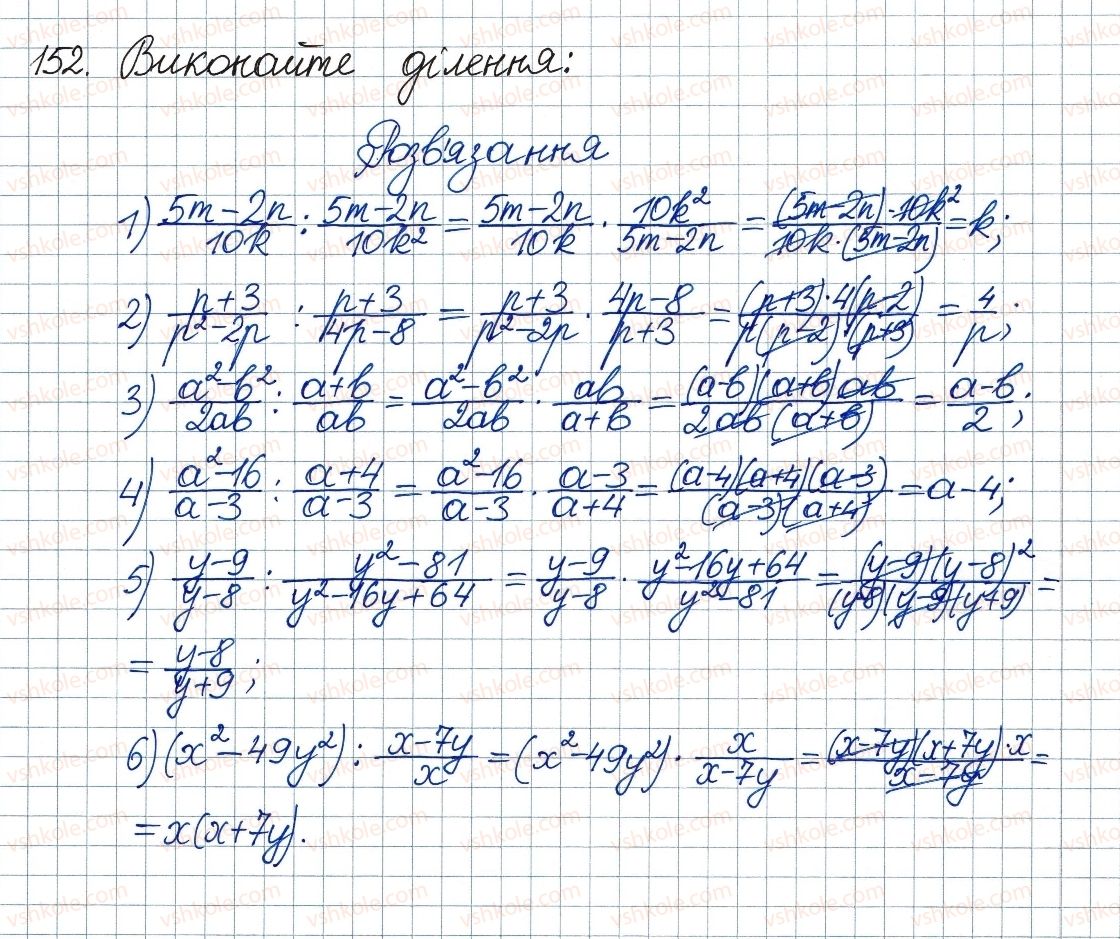 152. Виконайте ділення:
Розв'язання
1) (5m-2n)/(10k) : (5m-2n)/(10k²) = (5m-2n)/(10k) · (10k²)/(5m-2n) = ((5m-2n)·10k²)/(10k·(5m-2n)) = k;
2) (p+3)/(p²-2p) : (p+3)/(4p-8) = (p+3)/(p²-2p) · (4p-8)/(p+3) = ((p+3)·4(p-2))/(p(p-2)·(p+3)) = 4/p;
3) (a²-b²)/(2ab) : (a+b)/(ab) = (a²-b²)/(2ab) · (ab)/(a+b) = ((a-b)(a+b)ab)/(2ab(a+b)) = (a-b)/2;
4) (a²-16)/(a-3) : (a+4)/(a-3) = (a²-16)/(a-3) · (a-3)/(a+4) = ((a-4)(a+4)(a-3))/((a-3)(a+4)) = a-4;
5) (y-9)/(y-8) : (y²-81)/(y²-16y+64) = (y-9)/(y-8) · (y²-16y+64)/(y²-81) = ((y-9)(y-8)²)/((y-8)(y-9)(y+9)) =
= (y-8)/(y+9);
6) (x²-49y²) : (x-7y)/x = (x²-49y²) · x/(x-7y) = ((x-7y)(x+7y)·x)/(x-7y) =
= x(x+7y).